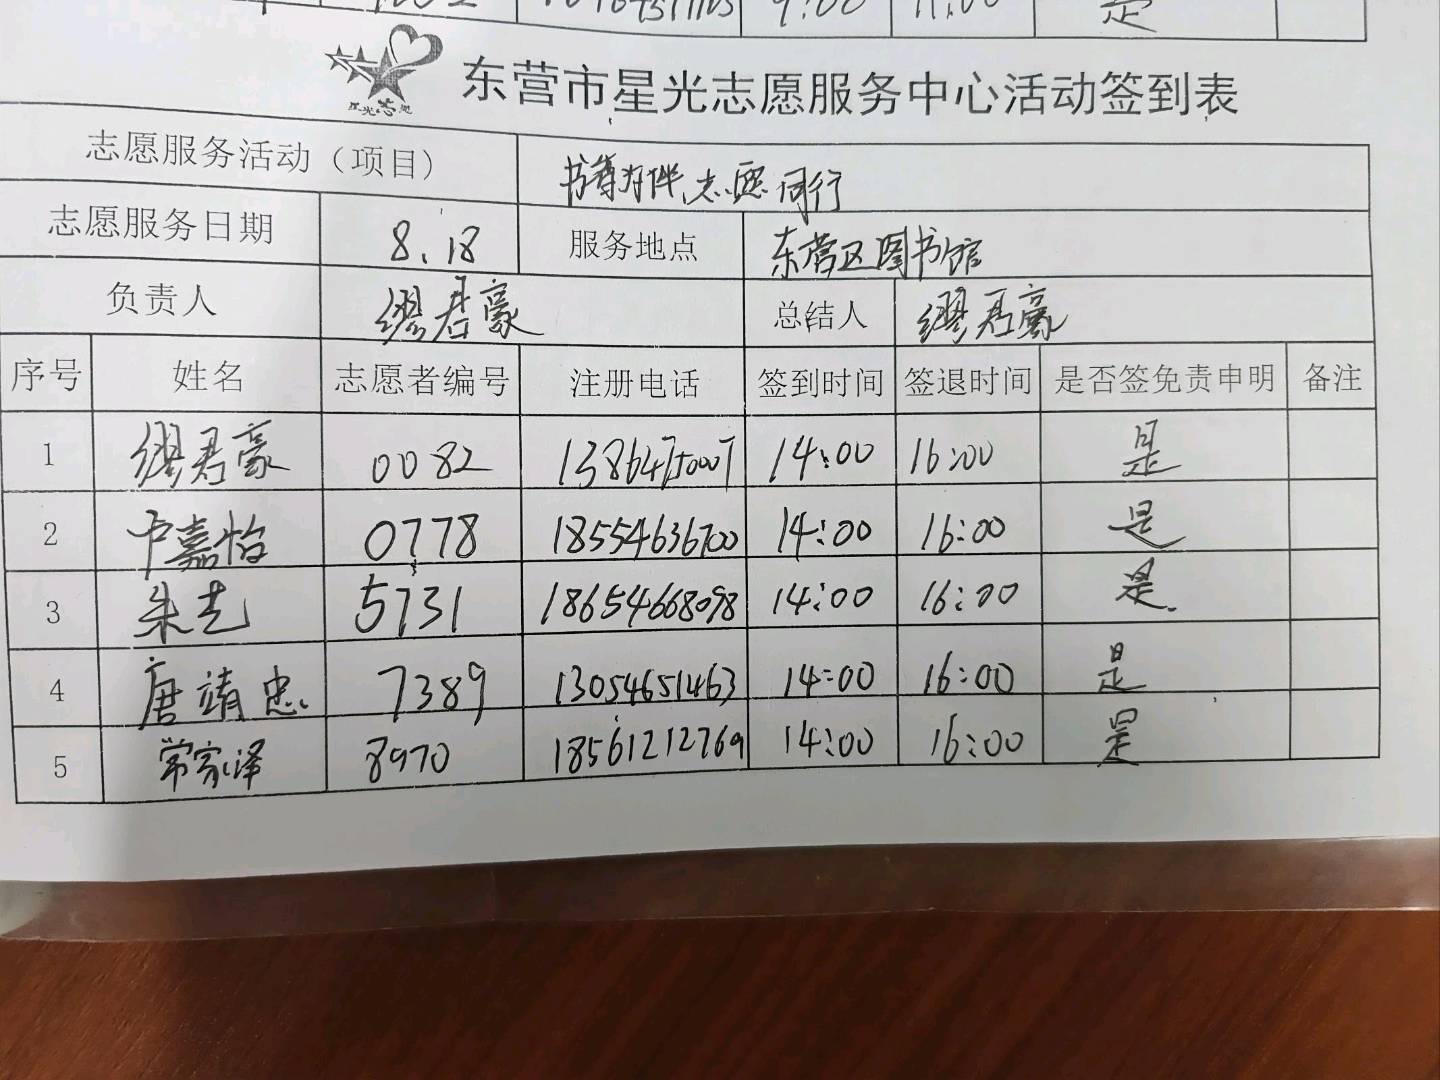 9:00 11:00 是
星光志愿
东营市星光志愿服务中心活动签到表
志愿服务活动（项目） 书尊为伴、志愿同行
志愿服务日期 8.18 服务地点 东营区图书馆
负责人 缪君豪 总结人 缪君豪
序号 姓名 志愿者编号 注册电话 签到时间 签退时间 是否签免责申明 备注
1 缪君豪 0082 14:00 16:00 是
2 嘉怡 0778 18554636700 14:00 16:00 是
3 朱艺 5731 18654668098 14:00 16:00 是
4 唐靖忠 7389 13054651463 14:00 16:00 是
5 常家泽 8970 18561212769 14:00 16:00 是